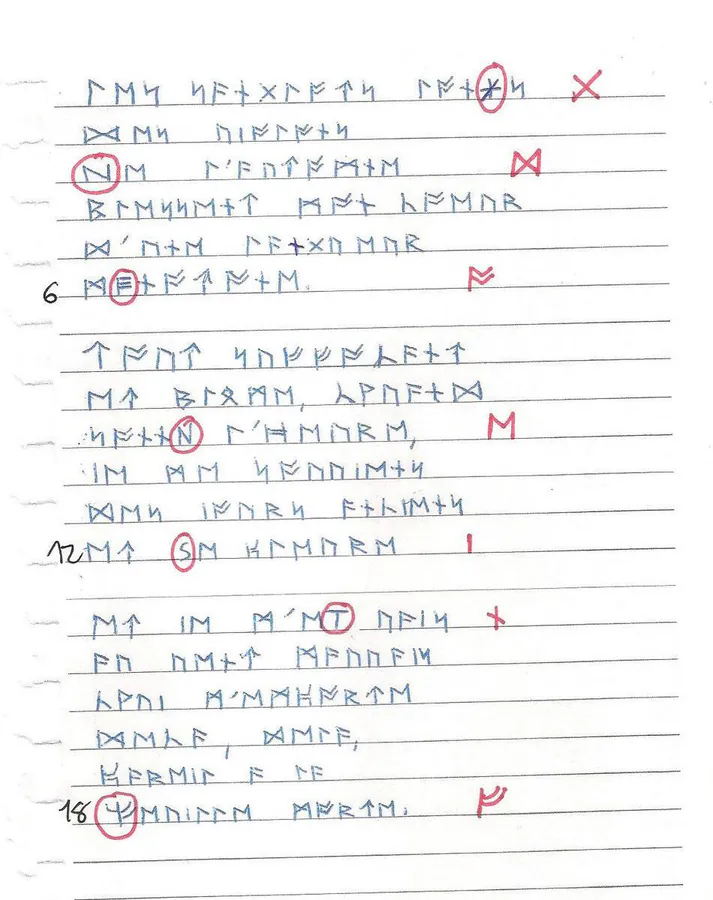 ᛚᛖᛋ ᛋᚨᚾᚷᛚᚩᛏᛋ ᛚᚩᚾᛡᛋ ᚷ
ᛞᛖᛋ ᚢᛁᚩᛚᚩᚾᛋ
Nᛖ ᛚ'ᚨᚢᛏᚩᛗᚾᛖ ᛞ
ᛒᛚᛖᛋᛋᛖᚾᛏ ᛗᚩᚾ ᚳᚩᛖᚢᚱ
ᛞ'ᚢᚾᛖ ᛚᚨᚾᚷᚢᛖᚢᚱ
6 ᛗEᚾᚩᛏᚩᚾᛖ. ᚩ
ᛏᚩᚢᛏ ᛋᚢᚠᚠᚩᚳᚨᚾᛏ
ᛖᛏ ᛒᛚᛟᛗᛖ, ᚳᚹᚢᚨᚾᛞ
ᛋᚩᚾᚾN ᛚ'ᚻᛖᚢᚱᛖ, ᛖ
ᛁᛖ ᛗᛖ ᛋᚩᚢᚢᛁᛖᚾᛋ
ᛞᛖᛋ ᛁᚩᚢᚱᛋ ᚨᚾᚳᛁᛖᚾᛋ
12 ᛖᛏ Sᛖ ᛈᛚᛖᚢᚱᛖ ᛁ
ᛖᛏ ᛁᛖ ᛗ'ᛖT ᚢᚨᛁᛋ ᚾ
ᚨᚢ ᚢᛖᚾᛏ ᛗᚨᚢᚢᚨᛁᛋ
ᚳᚹᚢᛁ ᛗ'ᛖᛗᛈᚩᚱᛏᛖ
ᛞᛖᚳᚨ, ᛞᛖᛚᚨ,
ᛈᚨᚱᛖᛁᛚ ᚨ ᛚᚨ
18 ᚠᛖᚢᛁᛚᛚᛖ ᛗᚩᚱᛏᛖ. ᚠ